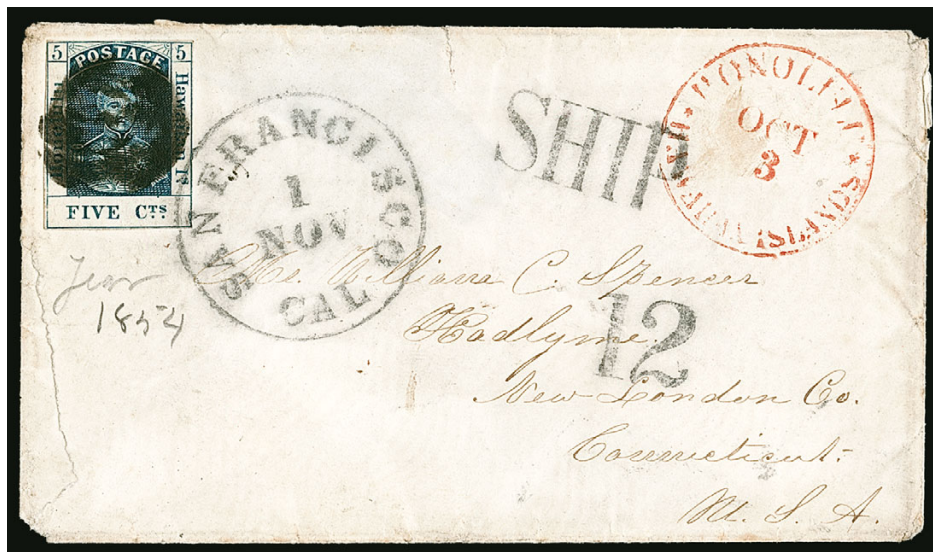 5 POSTAGE 5
Honolulu
Hawaiian Is
FIVE CTS
SAN FRANCISCO
1
NOV
CAL
SHIP
HONOLULU
OCT
3
HAWAIIAN ISLANDS
Year
1854
Mr. William C. Spencer
Hadlyme.
12
New London Co.
Connecticut.
U. S. A.